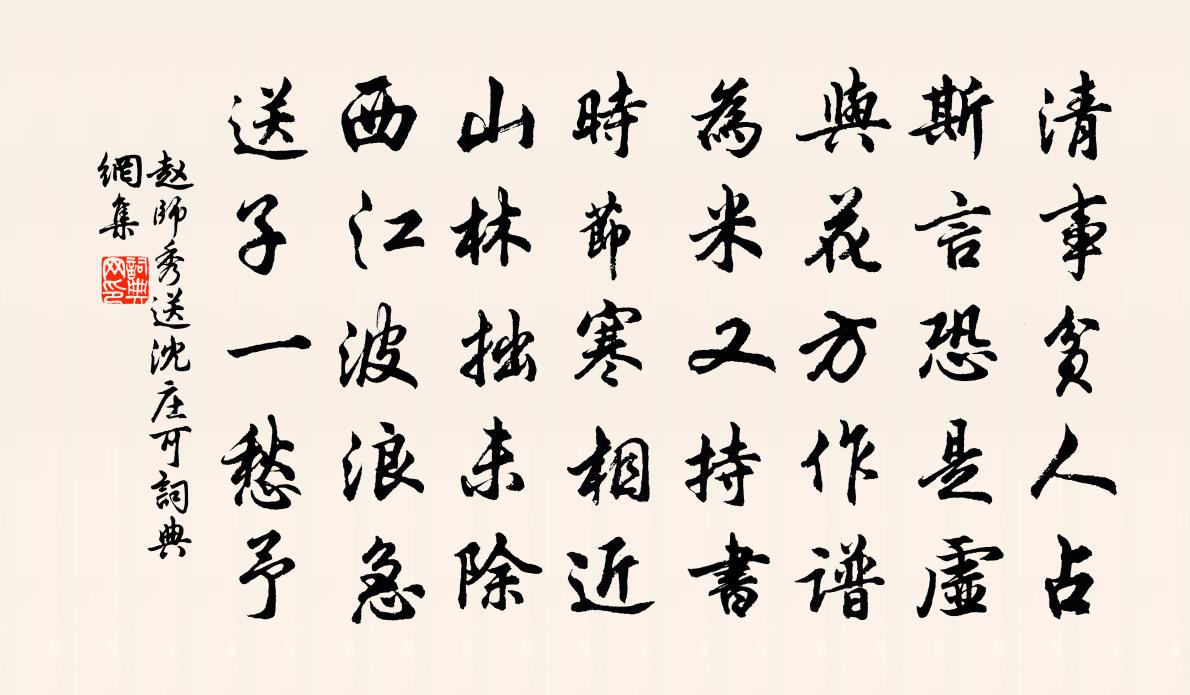 清事貧人占
斯言恐是虛
與花方作譜
為米又持書
時節寒相近
山林拙未除
西江波浪急
送子一愁予
赵師秀送沈庄可詞典
網集
詞典
网印